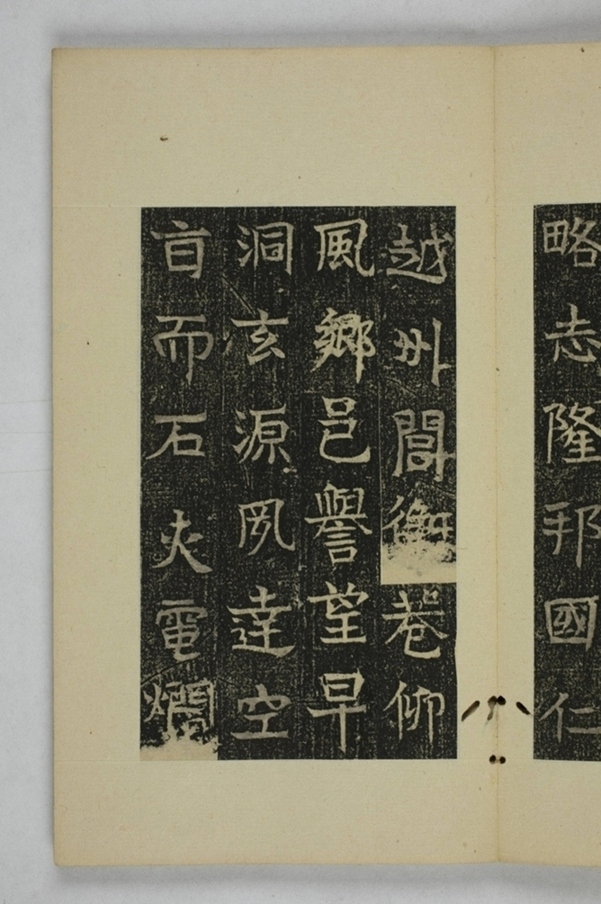 略志隆邦國仁
越州閭衢巷仰
風鄉邑譽望早
洞玄源夙達空
旨而石火電爓